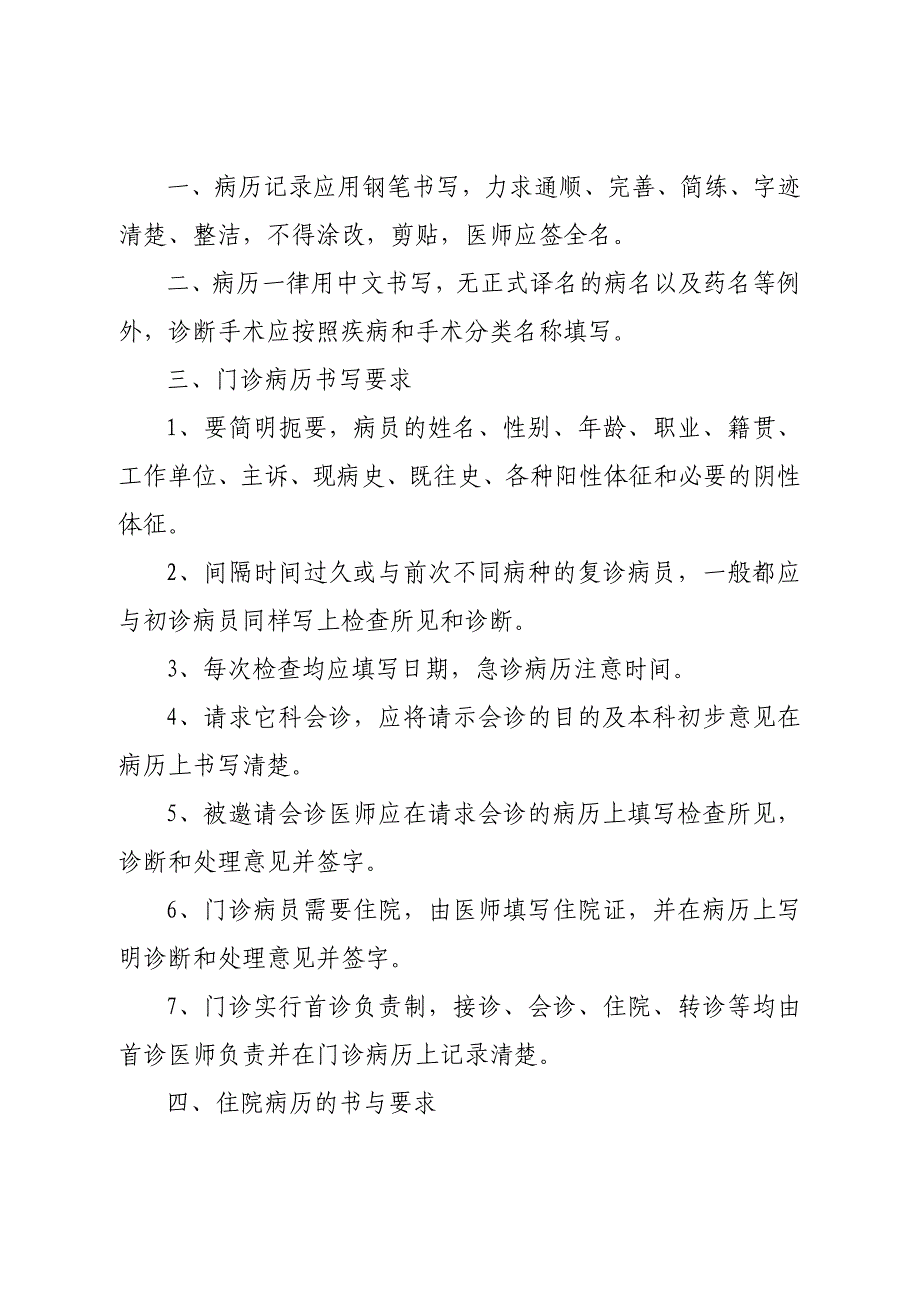 一、病历记录应用钢笔书写，力求通顺、完善、简练、字迹
清楚、整洁，不得涂改，剪贴，医师应签全名。
二、病历一律用中文书写，无正式译名的病名以及药名等例
外，诊断手术应按照疾病和手术分类名称填写。
三、门诊病历书写要求
1、要简明扼要，病员的姓名、性别、年龄、职业、籍贯、
工作单位、主诉、现病史、既往史、各种阳性体征和必要的阴性
体征。
2、间隔时间过久或与前次不同病种的复诊病员，一般都应
与初诊病员同样写上检查所见和诊断。
3、每次检查均应填写日期，急诊病历注意时间。
4、请求它科会诊，应将请示会诊的目的及本科初步意见在
病历上书写清楚。
5、被邀请会诊医师应在请求会诊的病历上填写检查所见，
诊断和处理意见并签字。
6、门诊病员需要住院，由医师填写住院证，并在病历上写
明诊断和处理意见并签字。
7、门诊实行首诊负责制，接诊、会诊、住院、转诊等均由
首诊医师负责并在门诊病历上记录清楚。
四、住院病历的书与要求